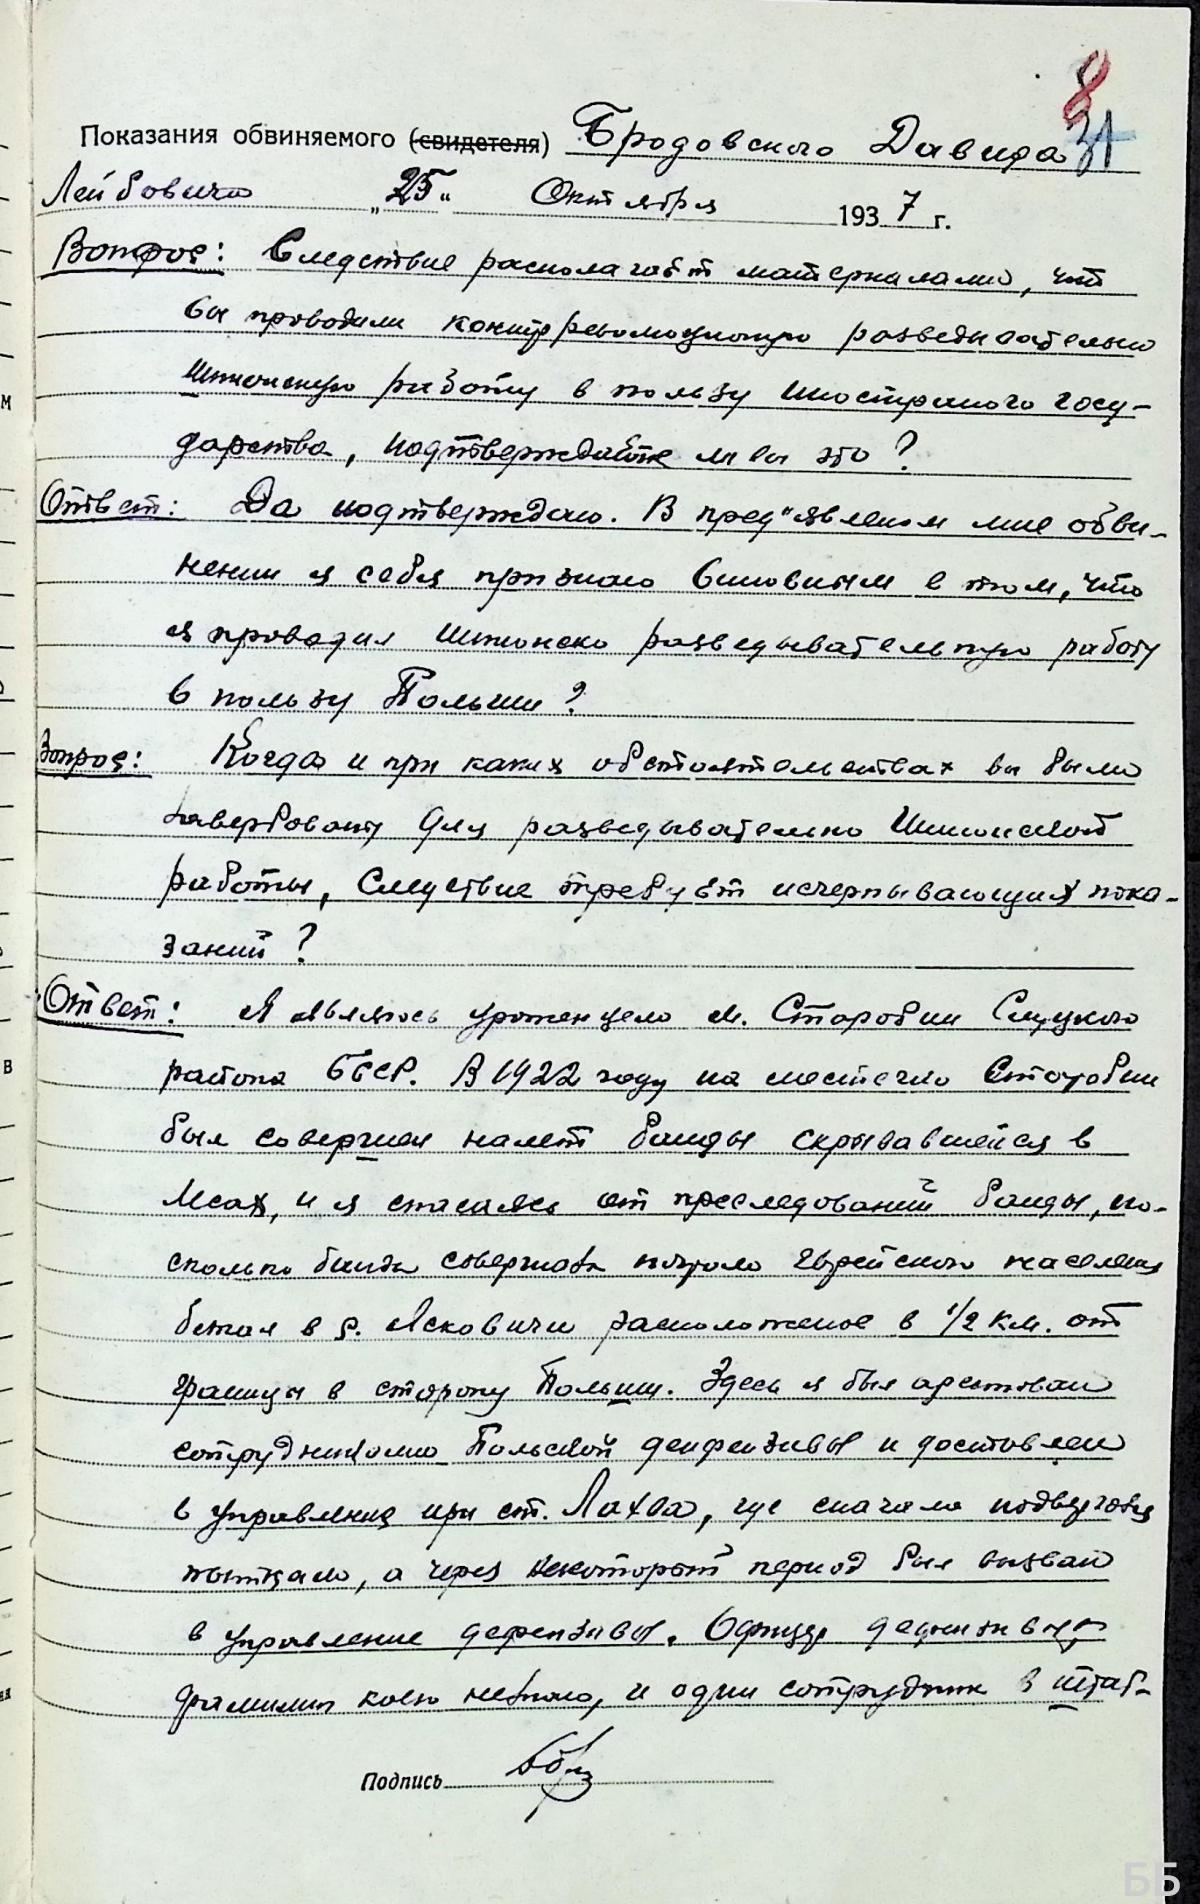 8
31
Показания обвиняемого (свидетеля) Бродовского Давида
Лейбовича „25“ Октября 1937 г.
Вопрос: Следствие располагает материалами, что
вы проводили контрреволюционую разведывательно
шпионскую работу в пользу иностраного госу-
дарства, подтверждаете ли вы это?
Ответ: Да подтверждаю. В пред"явленом мне обви-
нении я себя признаю виновным в том, что
я проводил шпионско разведывательную работу
в пользу Польши?
Вопрос: Когда и при каких обстоятельствах вы были
завербованы для разведывательно шпионской
работы, следствие требует исчерпывающих пока-
заний?
Ответ: Я являюсь уроженцем м. Старобин Слуцкого
района БССР. В 1922 году на местечко Старобин
был совершен налет банды скрывавшейся в
лесах, и я спасаясь от преследований банды, по-
скольку банда совершала погромы еврейского населения
бежал в д. Ясковичи расположеное в 1/2 км. от
границы в сторону Польши. Здесь я был арестован
сотрудниками Польской дефензивы и доставлен
в управление при ст. Лахва, где сначала подвергался
пыткам, а через некоторый период был вызван
в управление дефензивы. Офицер дефензивы,
фамилии коего не знаю, и один сотрудник в штат-
Подпись
ББ